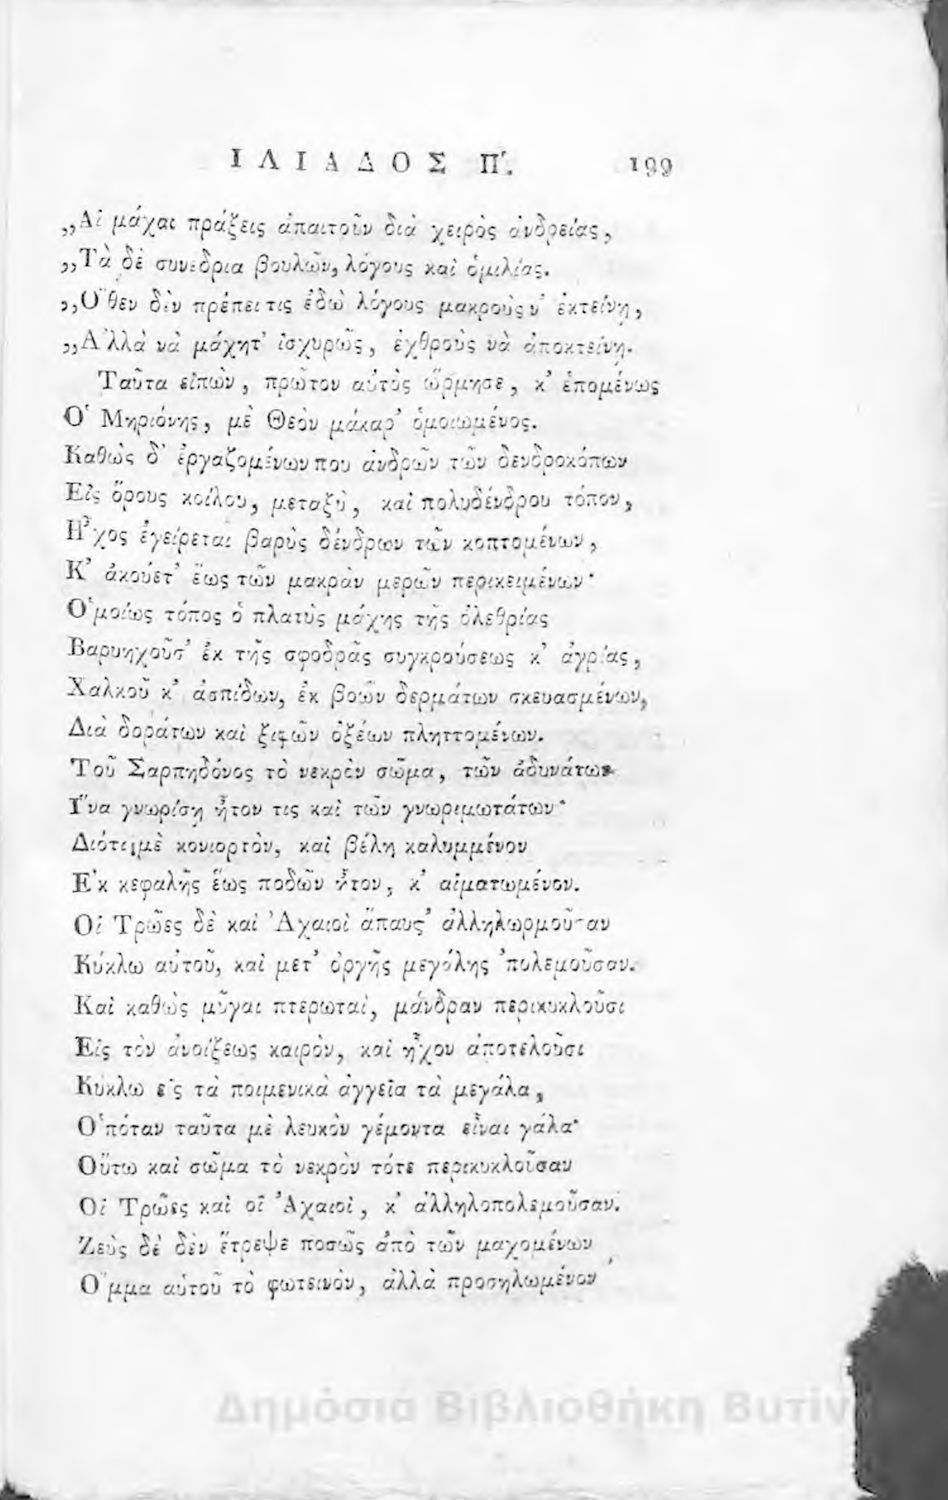 ΙΛΙΑΔΟΣ Π'. 199
„Αἱ μάχαι πράξεις ἀπαιτοῦν διὰ χειρὸς ἀνδρείας,
„Τὰ δὲ συνέδρια βουλῶν, λόγους καὶ ὁμιλίας.
„Ὅθεν δὲν πρέπει τις ἐδῶ λόγους μακροὺς ν' ἐκτείνῃ,
„Ἀλλὰ νὰ μάχητ' ἰσχυρῶς, ἐχθροὺς νὰ ἀποκτείνῃ.
Ταῦτα εἰπὼν, πρῶτον αὐτὸς ὥρμησε, κ' ἑπομένως
Ὁ Μηριόνης, μὲ Θεὸν μάκαρ' ὁμοιωμένος.
Καθὼς δ' ἐργαζομένων που ἀνδρῶν τῶν δενδροκόπων
Εἰς ὄρους κοίλου, μεταξὺ, καὶ πολυδένδρου τόπον,
Ἦχος ἐγείρεται βαρὺς δένδρων τῶν κοπτομένων,
Κ' ἀκούετ' ἕως τῶν μακρὰν μερῶν περικειμένων·
Ὁμοίως τόπος ὁ πλατὺς μάχης τῆς ὀλεθρίας
Βαρυηχοῦσ' ἐκ τῆς σφοδρᾶς συγκρούσεως κ' ἀγρίας,
Χαλκοῦ κ' ἀσπίδων, ἐκ βοῶν δερμάτων σκευασμένων,
Διὰ δοράτων καὶ ξιφῶν ὀξέων πληττομένων.
Τοῦ Σαρπηδόνος τὸ νεκρὸν σῶμα, τῶν ἀδυνάτων
Ἵνα γνωρίσῃ ἦτον τις καὶ τῶν γνωριμωτάτων·
Διότι μὲ κονιορτὸν, καὶ βέλη καλυμμένον
Ἐκ κεφαλῆς ἕως ποδῶν ἦτον, κ' αἱματωμένον.
Οἱ Τρῶες δὲ καὶ Ἀχαιοὶ ἅπαυς' ἀλληλωρμοῦσαν
Κύκλω αὐτοῦ, καὶ μετ' ὀργῆς μεγάλης 'πολεμοῦσαν.
Καὶ καθὼς μῦγαι πτερωταὶ, μάνδραν περικυκλοῦσι
Εἰς τὸν ἀνοίξεως καιρὸν, καὶ ἦχον ἀποτελοῦσι
Κύκλω εἰς τὰ ποιμενικὰ ἀγγεῖα τὰ μεγάλα,
Ὁπόταν ταῦτα μὲ λευκὸν γέμοντα εἶναι γάλα·
Οὕτω καὶ σῶμα τὸ νεκρὸν τότε περικυκλοῦσαν
Οἱ Τρῶες καὶ οἱ Ἀχαιοὶ, κ' ἀλληλοπολεμοῦσαν.
Ζεὺς δὲ δὲν ἔτρεψε ποσῶς ἀπὸ τῶν μαχομένων
Ὄμμα αὐτοῦ τὸ φωτεινὸν, ἀλλὰ προσηλωμένον
Δημόσια Βιβλιοθήκη Βυτίν